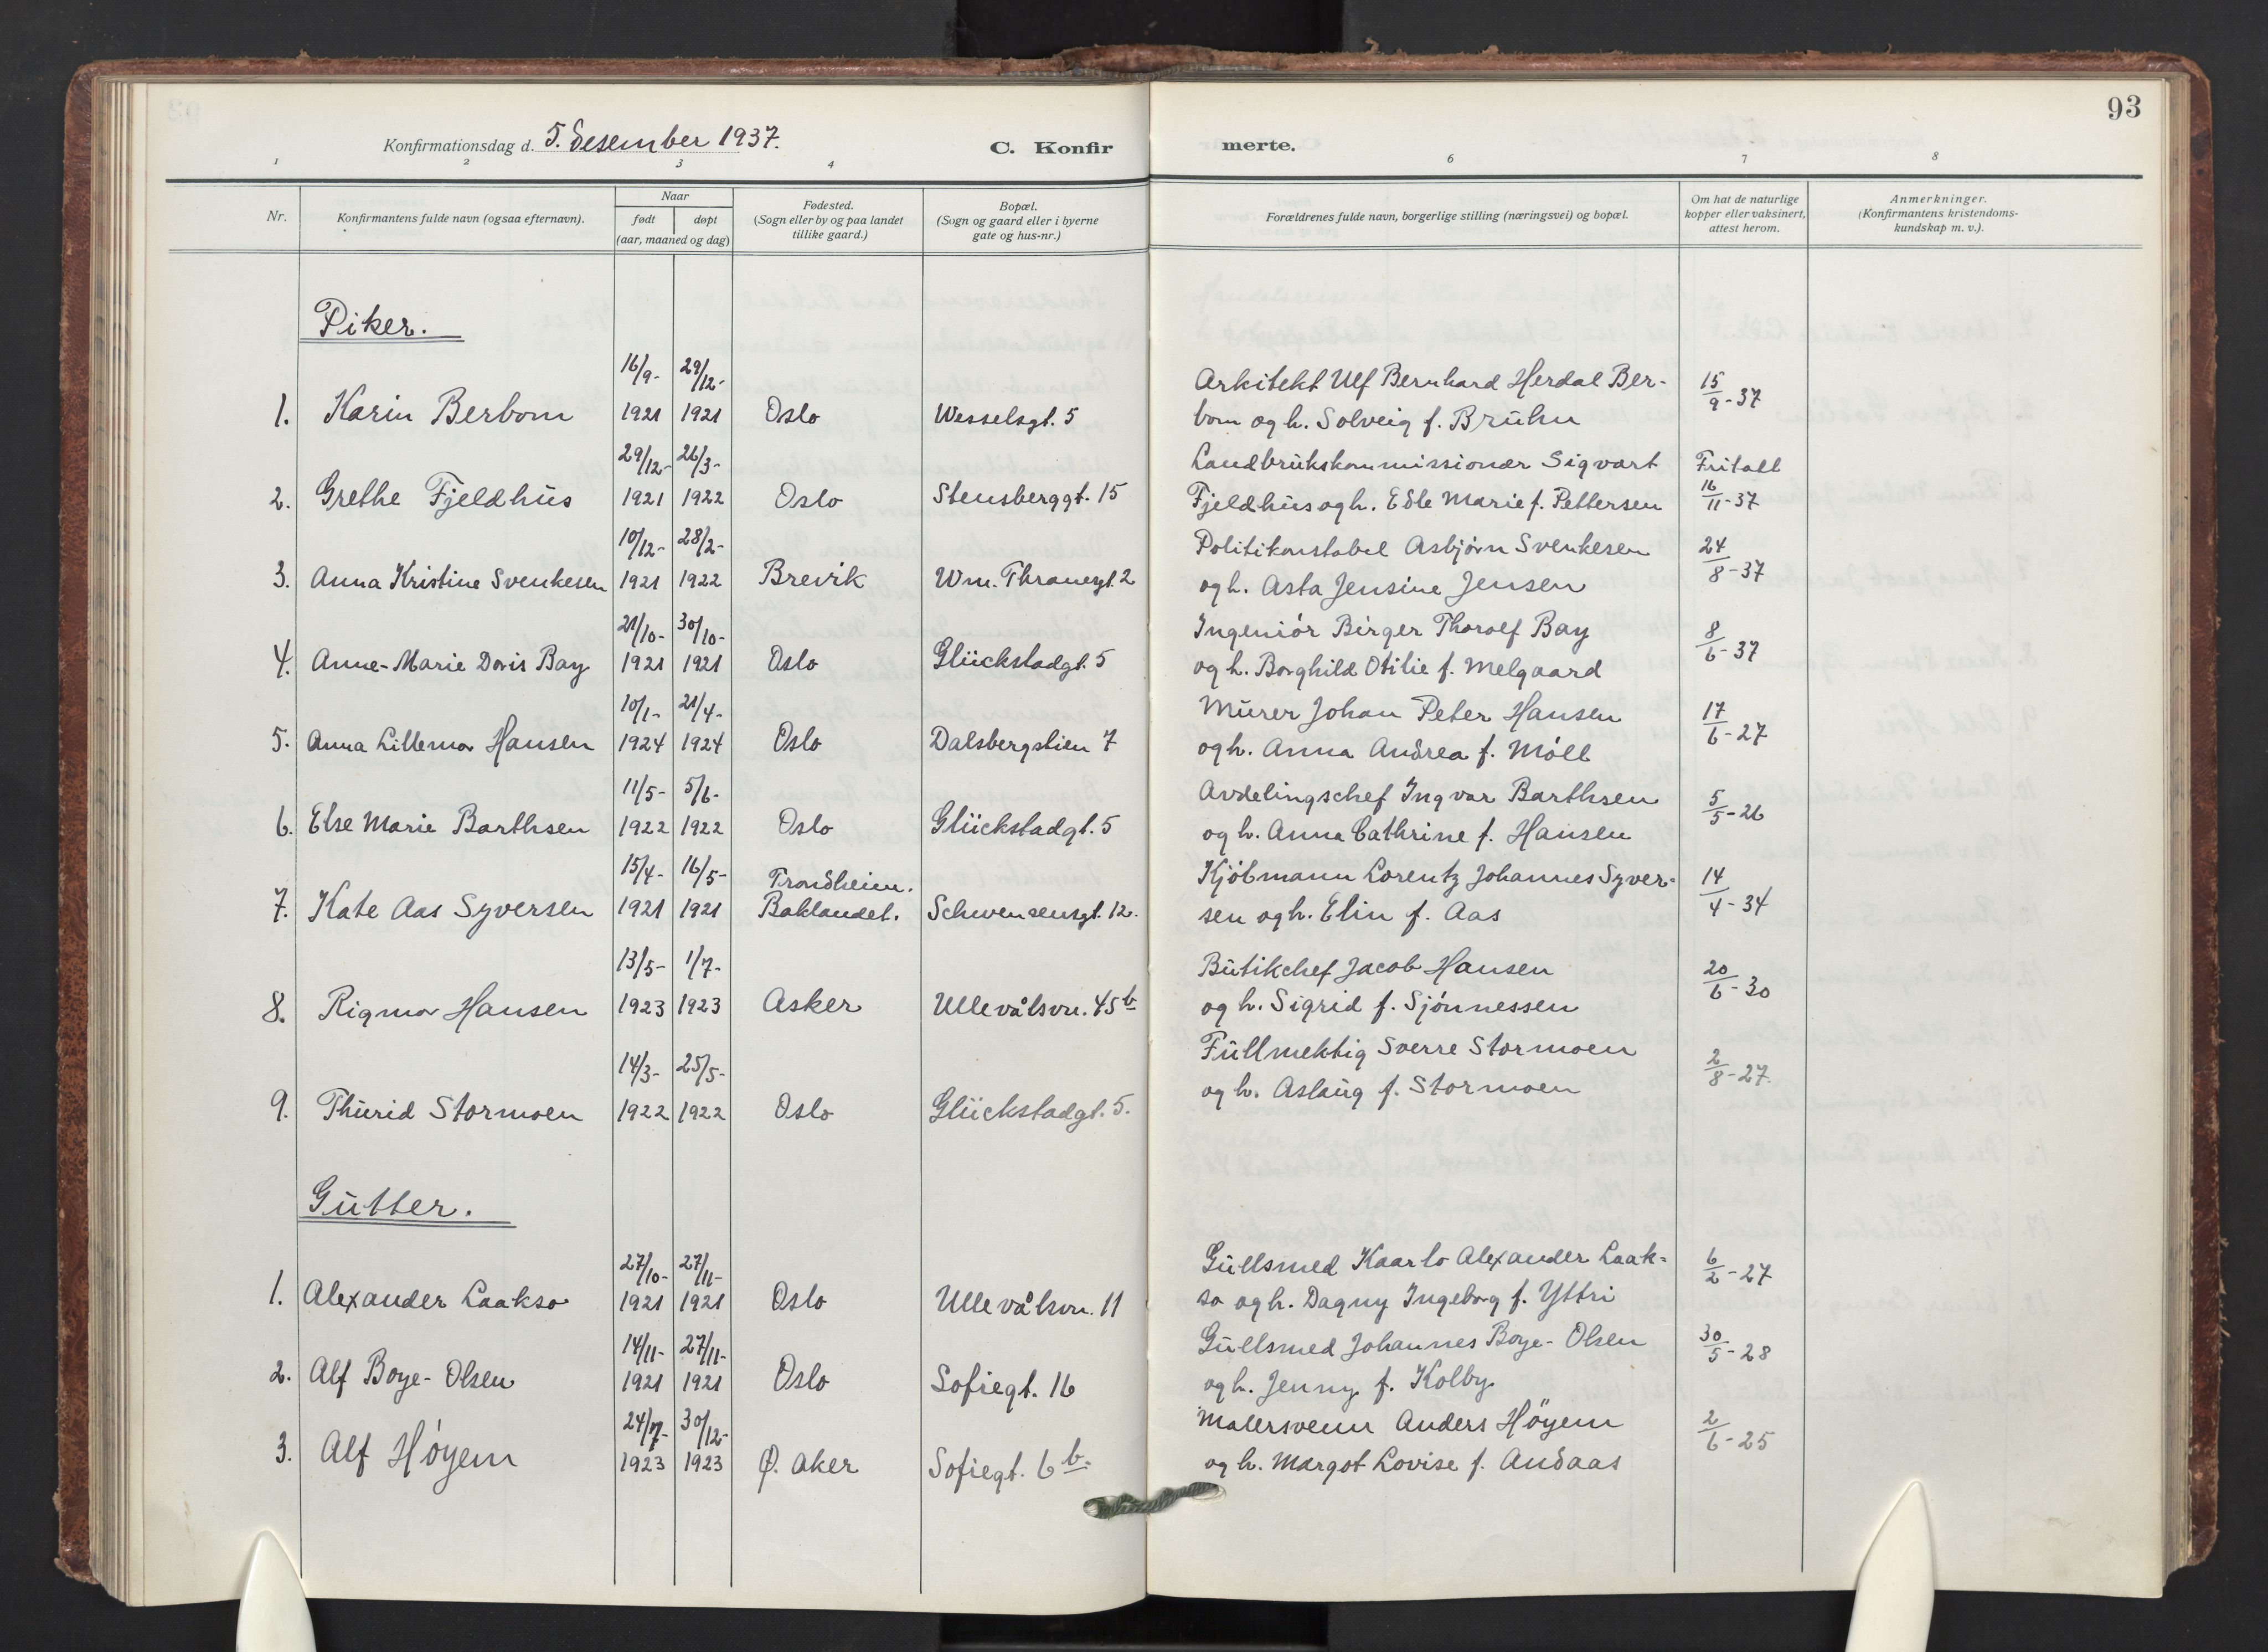 93
Konfirmationsdag d. 5. desember 1937.
C. Konfir
merte.
1 2 3 4 6 7 8
Nr.
Konfirmantens fulde navn (ogsaa efternavn).
Naar
født døpt
(aar, maaned og dag)
Fødested.
(Sogn eller by og paa landet
tillike gaard.)
Bopæl.
(Sogn og gaard eller i byerne
gate og hus-nr.)
Forældrenes fulde navn, borgerlige stilling (næringsvei) og bopæl.
Om hat de naturlige
kopper eller vaksinert,
attest herom.
Anmerkninger.
(Konfirmantens kristendoms-
kundskap m. v.).
Piker.
16/9- 29/12- Arkitekt Ulf Bernhard Herdal Ber- 15/9-37
1. Karin Berbom 1921 1921 Oslo Wesselsgt. 5 bom og h. Solveig f. Bruhn
29/12- 26/3- Landbrukskommissionær Sigvart Fritatt
2. Grethe Fjeldhus 1921 1922 Oslo Stensberggt. 15 Fjeldhus og h. Edle Marie f. Pettersen 16/11-37
10/12- 28/2- Politikonstabel Asbjørn Svenkesen 24/8-37
3. Anna Kristine Svenkesen 1921 1922 Brevik Wm. Thranesgt. 2 og h. Asta Jensine Jensen
21/10- 30/10- Ingeniør Birger Thorolf Bay 8/6-37
4. Anne-Marie Doris Bay 1921 1921 Oslo Glückstadgt. 5 og h. Borghild Otilie f. Melgaard
10/1- 21/4- Murer Johan Peter Hansen 17/6-27
5. Anna Lillemor Hansen 1924 1924 Oslo Dalsbergstien 7 og h. Anna Andrea f. Møll
11/5- 5/6- Avdelingschef Ingvar Barthsen 5/5-26
6. Else Marie Barthsen 1922 1922 Oslo Glückstadgt. 5 og h. Anna Cathrine f. Hansen
15/4- 16/5- Trondheim. Kjøbmann Lorentz Johannes Syver- 14/4-34
7. Kate Aas Syversen 1921 1921 Baklandet. Schwensensgt. 12. sen og h. Elin f. Aas
13/5- 1/7- Butikchef Jacob Hansen 20/6-30
8. Rigmor Hansen 1923 1923 Asker Ullevålsvn. 45b og h. Sigrid f. Sjønnessen
14/3- 25/5- Fullmektig Sverre Stormoen 2/8-27.
9. Thurid Stormoen 1922 1922 Oslo Glückstadgt. 5. og h. Aslaug f. Stormoen
Gutter.
27/10- 27/11- Gullsmed Kaarlo Alexander Laak- 6/2-27
1. Alexander Laakso 1921 1921 Oslo Ullevålsvn. 11 so og h. Dagny Ingeborg f. Yttri
14/11- 27/11- Gullsmed Johannes Boye-Olsen 30/5-28
2. Alf Boye-Olsen 1921 1921 Oslo Sofiegt. 16 og h. Jenny f. Kolby
24/7- 30/12- Malersvenn Anders Høyem 2/6-25
3. Alf Høyem 1923 1923 Ø. Aker Sofiegt. 6b. og h. Margot Lovise f. Andaas